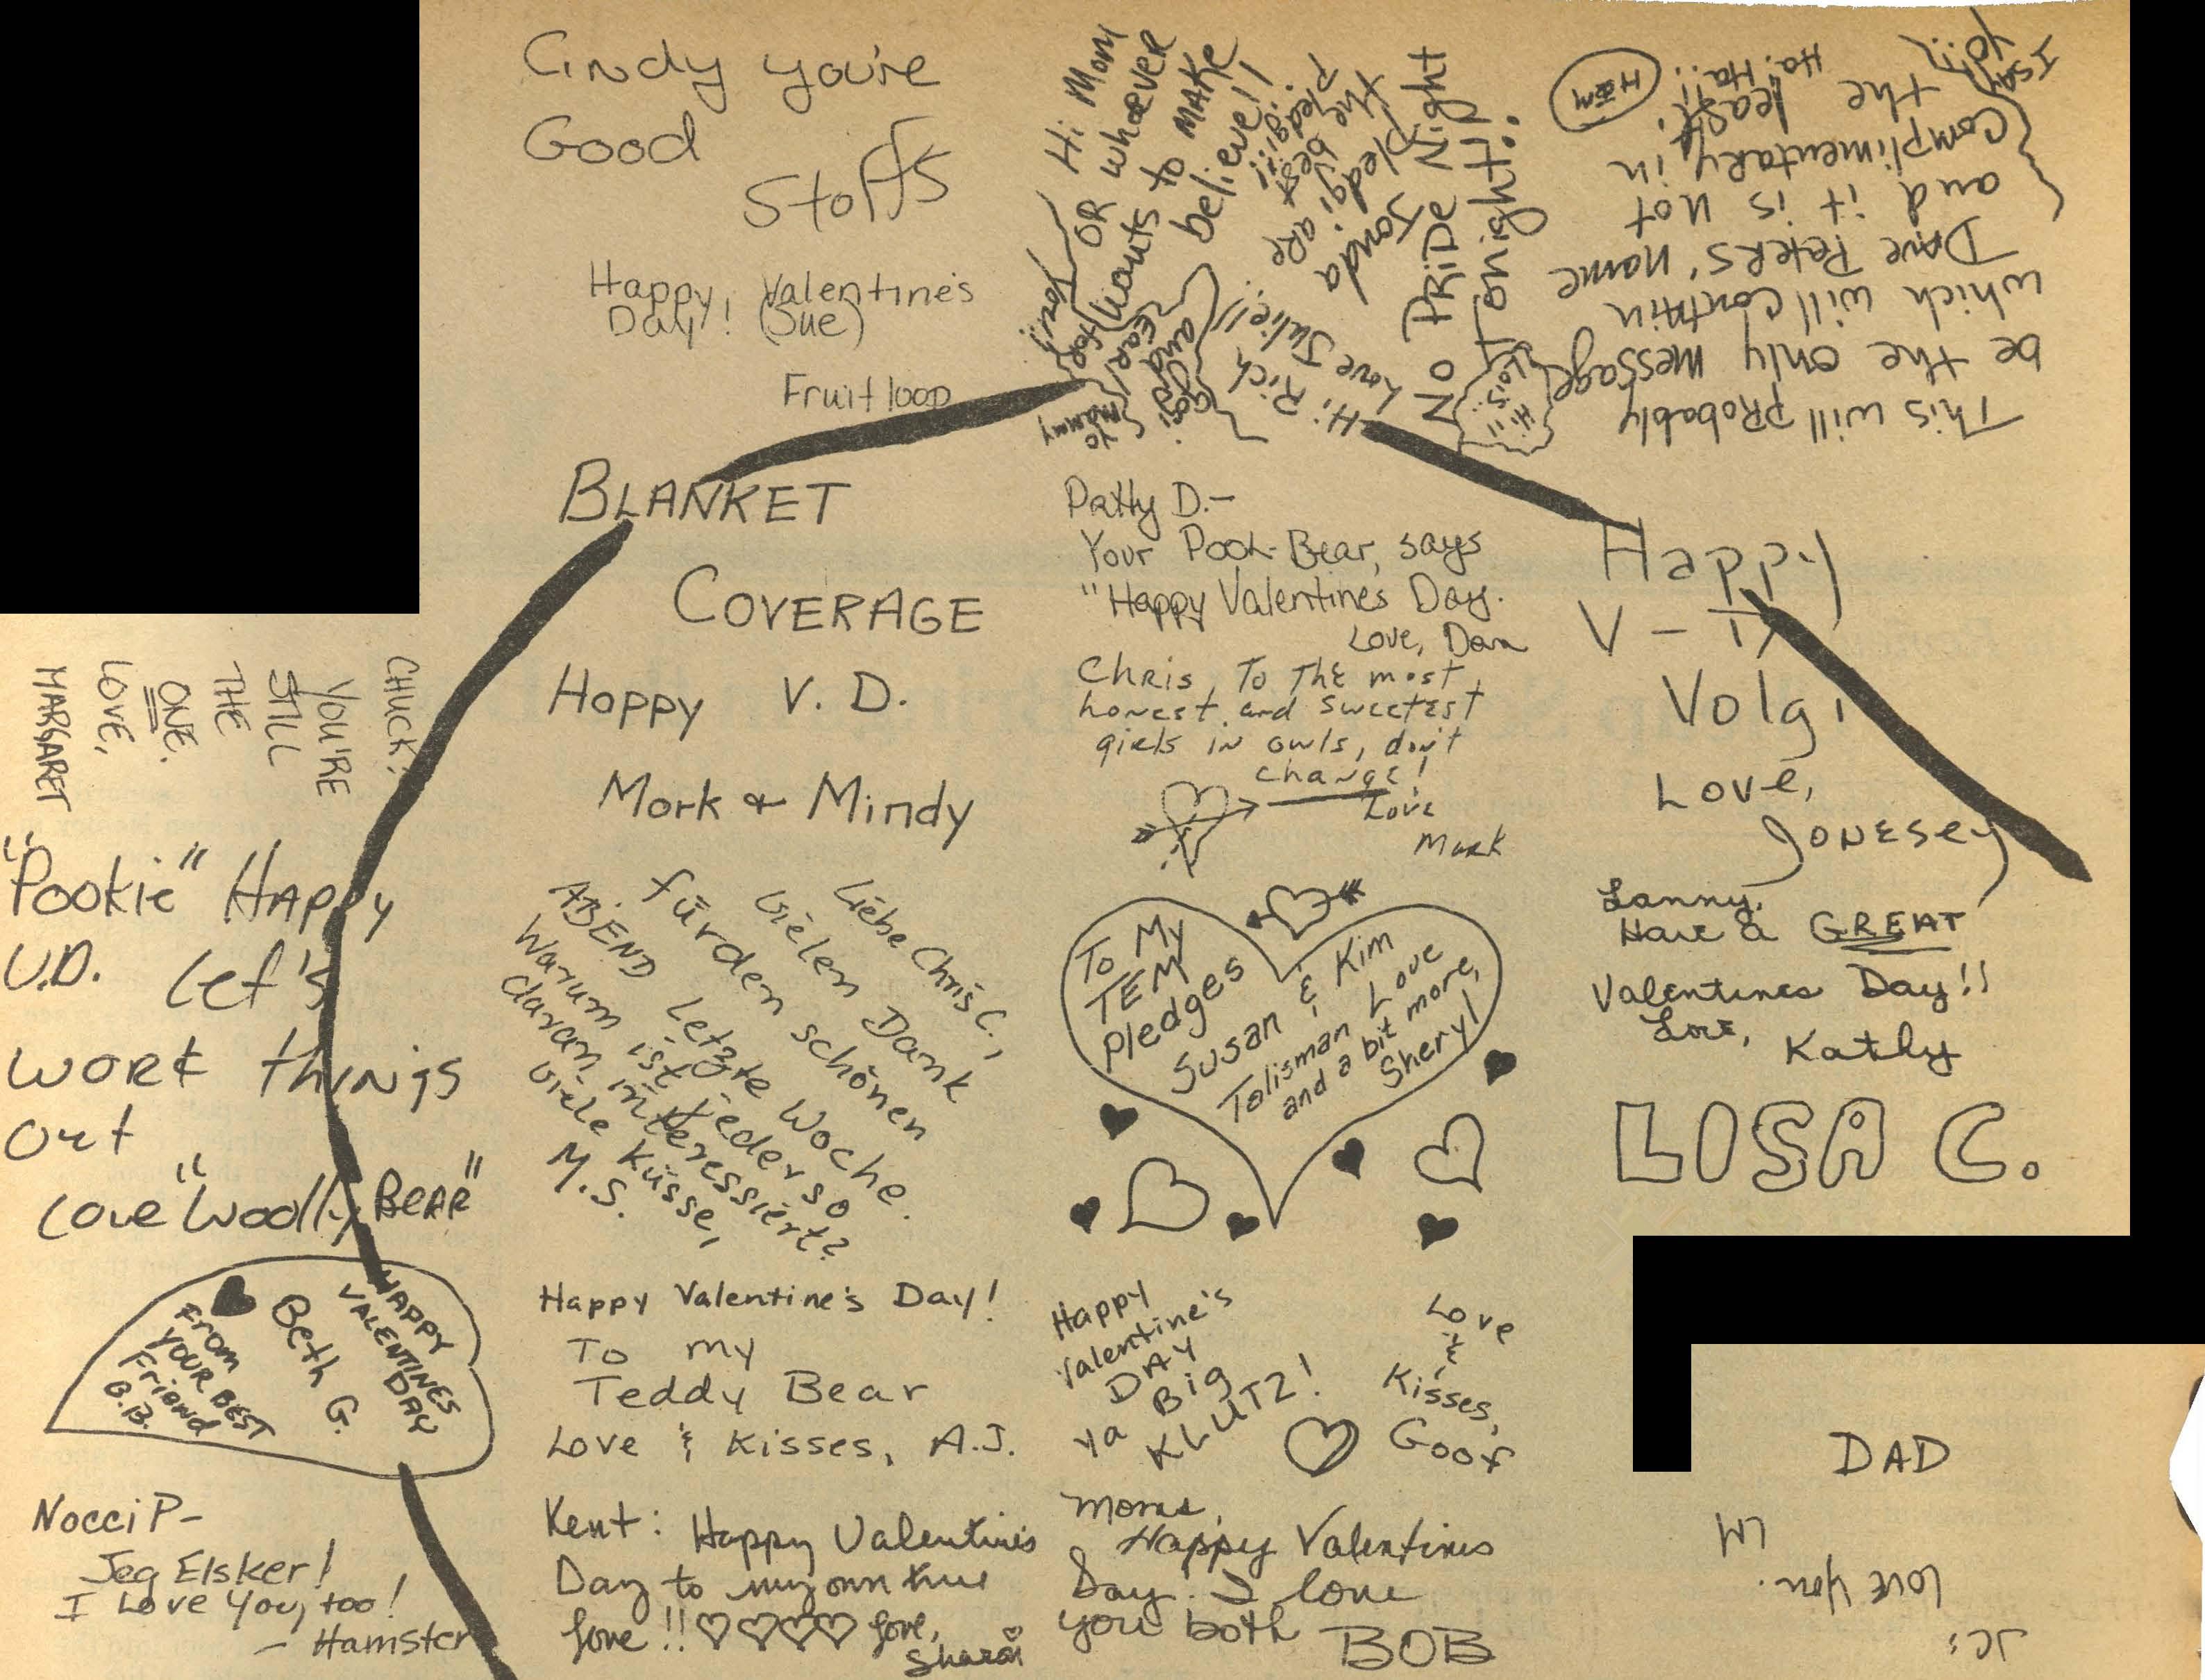 Cindy you're
Good
Stoffs
Happy, Valentine's
Day! (Sue)
Fruit loop
Hi Mom
OR whoever
wants to MAKE
believe!!
Hi Rich
Love Julie!!
the best
Pledgi!!
NO PRIDE Night
Tonight!!
Lois!!
Hi!!
This will probably
be the only message
which will contain
Dave Peters' name
and it is not
complimentary in
the least!
Ha! Ha!!
I say
BLANKET
COVERAGE
Hoppy V. D.
Mork & Mindy
Patty D.-
Your Pooh-Bear, says
"Happy Valentines Day.
Love, Dan
Chris, To The most
honest and sweetest
girls in owls, don't
change!
Love
Mark
Happy
V-
Volgi
Love,
Jonesey
CHUCK:
YOU'RE
STILL
THE
ONE.
LOVE,
MARGARET
"Pookie" Happy
V.D. Let's
work things
out
Love "Woolly BEAR"
Liebe Chris C.,
vielen Dank
für den schönen
ABEND Letzte Woche.
Warum ist jeder so
daran interessiert?
viele Küsse,
M.S.
To My
TEM
Pledges
Susan & Kim
Talisman Love
and a bit more,
Sheryl
Lanny,
Have a GREAT
Valentines Day!!
Love, Kathy
LISA C.
HAPPY
VALENTINES
DAY
Beth G.
From
YOUR BEST
Friend
B.B.
Happy Valentine's Day!
To my
Teddy Bear
Love & Kisses, A.J.
Happy
Valentine's
DAY
Ya Big
KLUTZ!
Love
&
Kisses,
Goof
Nocci P-
Jeg Elsker!
I Love You, too!
- Hamster
Kent: Happy Valentine's
Day to my own true
love!! love,
Sharon
Moms,
Happy Valentines
Day. I love
you both
BOB
DAD
LM
love you.
JC